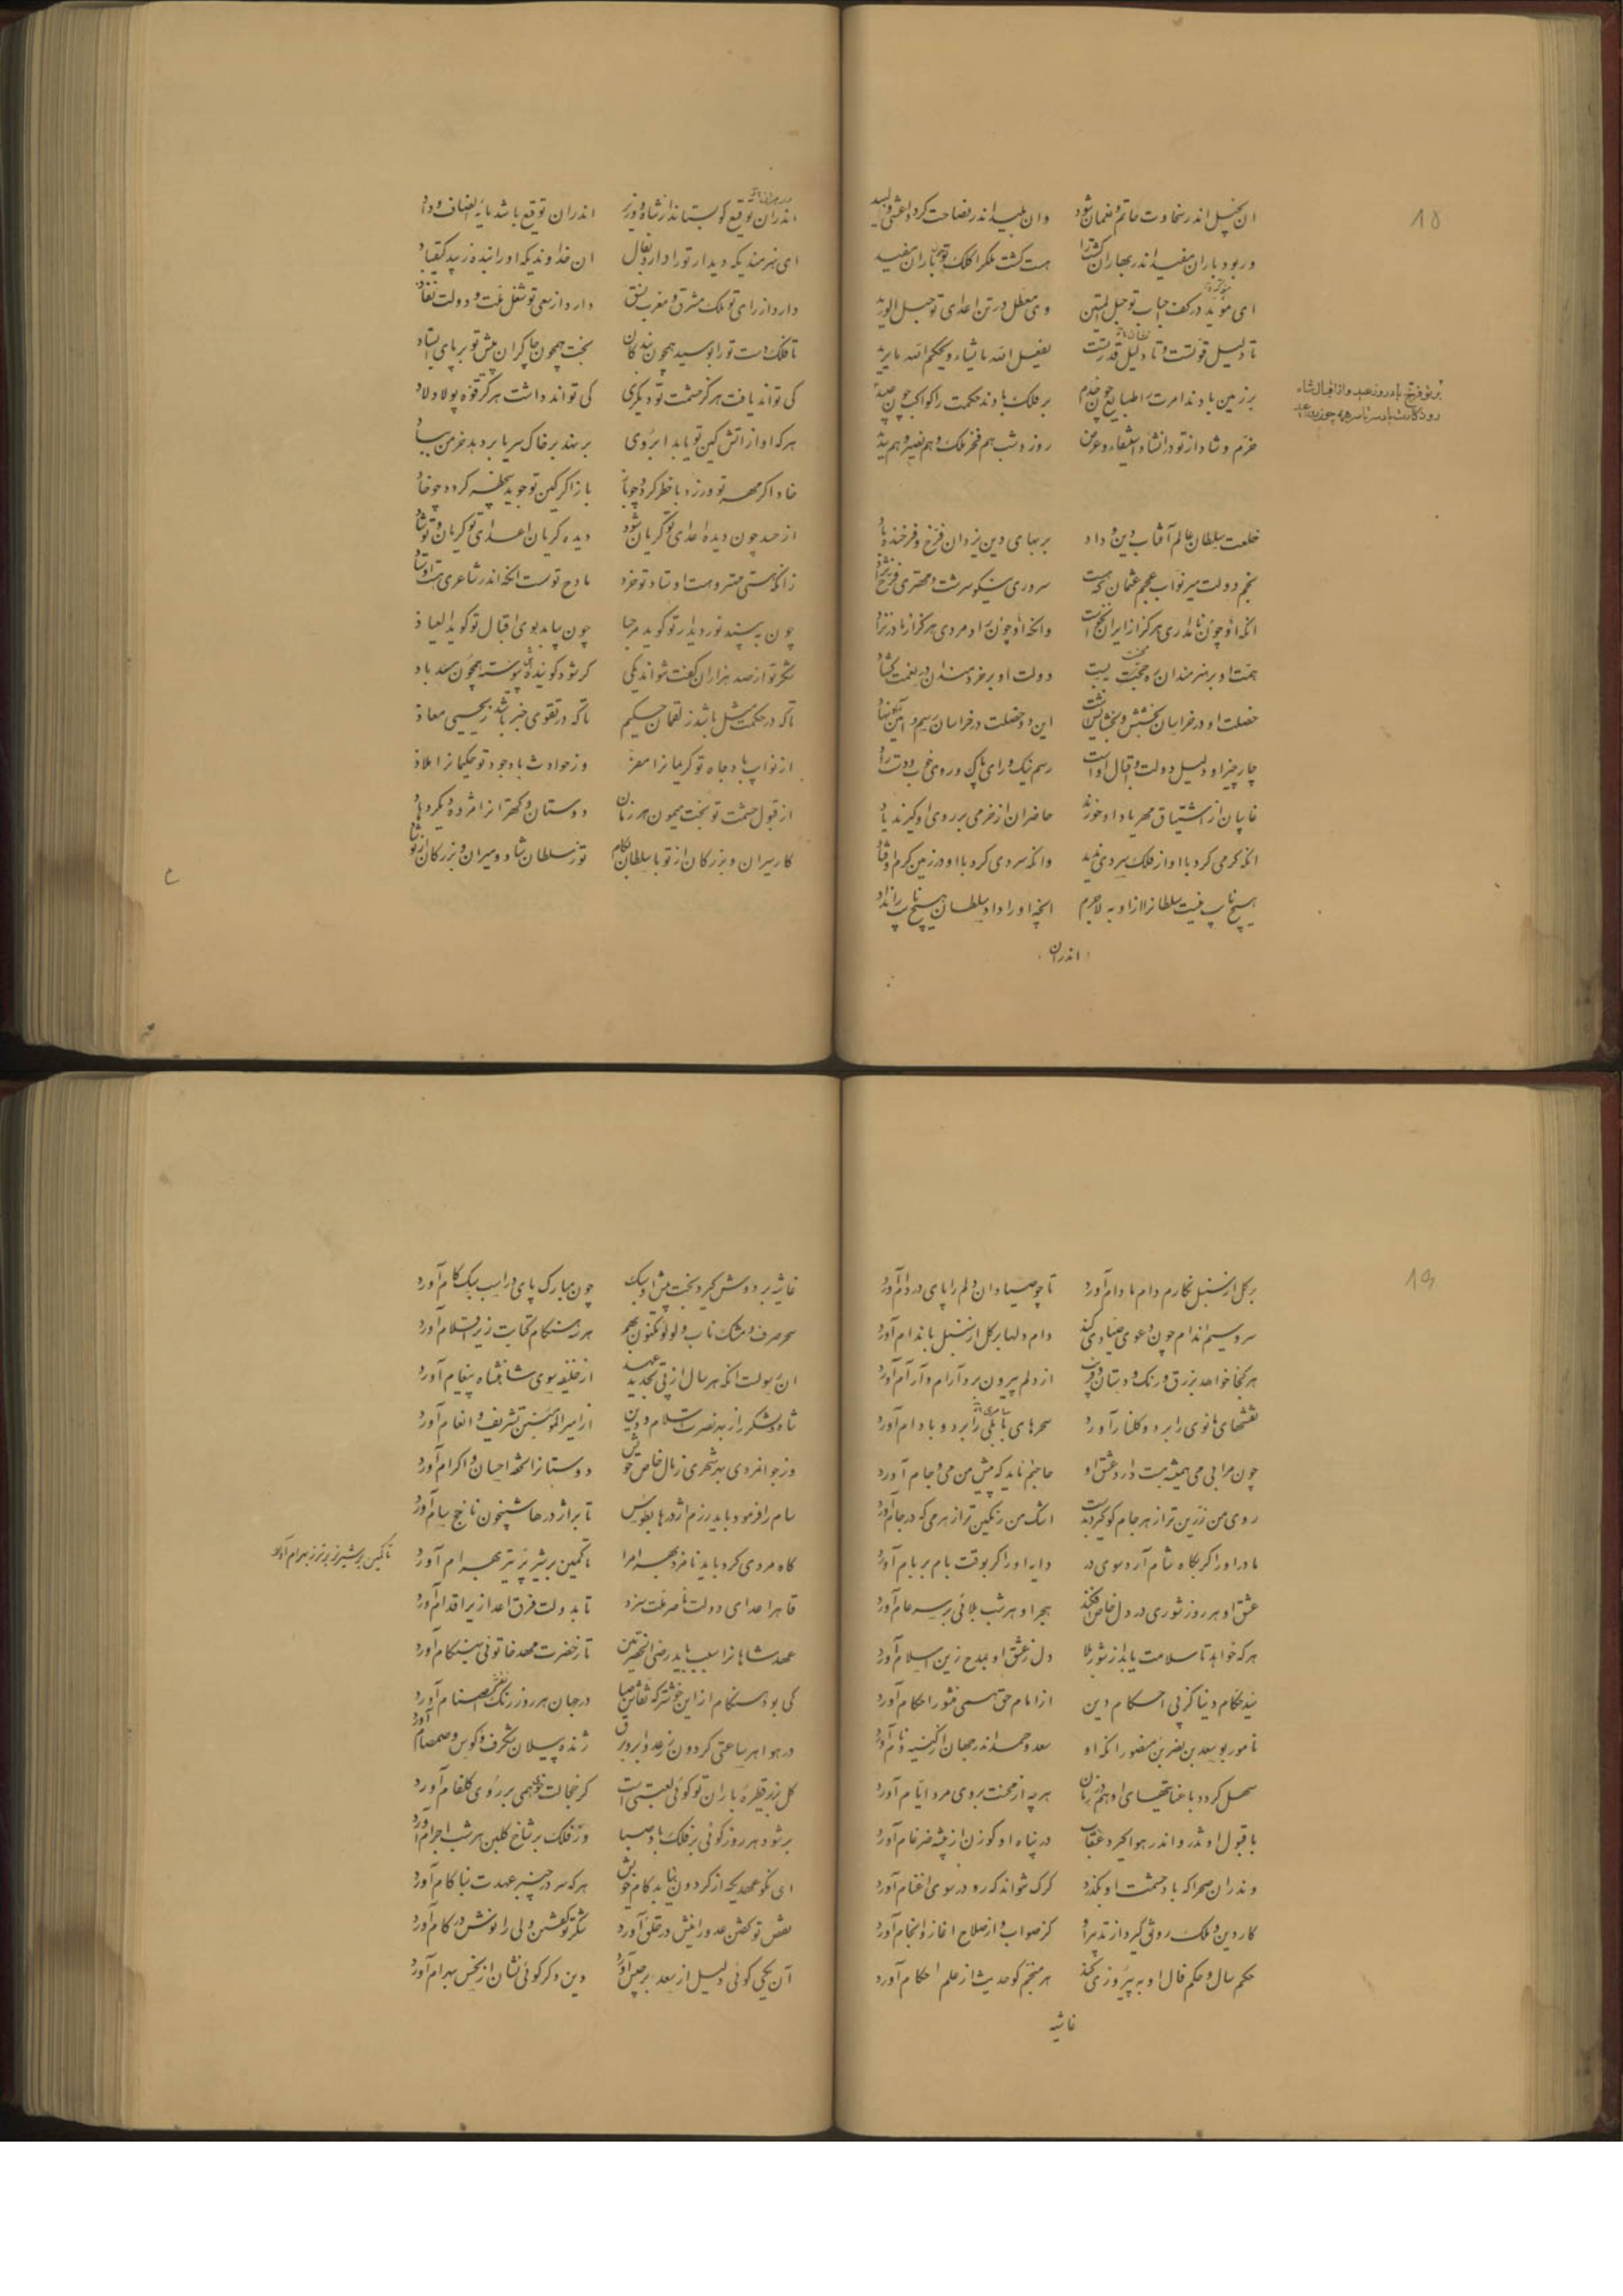 ان بخیل اندر سخاوت حاتم و نعمان شود    وان بلید اندر فصاحت کرد اعشی و لبید
ور بود باران مفید اندر بهاران کشت را    هست کشت ملک را کلک تو باران مفید
ای مؤید در کف احباب تو حبل المتین    وی معطل در تن اعدای تو حبل الورید
تا دلیل قوتست و تا دلیل قدرتست    یفعل الله ما یشاء و یحکم الله ما یرید
بر زمین بادند امرت را طبایع چون خدم    بر فلک بادند حکمت را کواکب چون عبید
خرم و شاد از تو در انشاد استیفاء و عرض    روز و شب هم فخر ملک و هم نصیر و هم
بر تو فرخ باد روز عید و از اقبال شاه
خلعت سلطان عالم آفتاب دین و داد    بر بهای دین یزدان فرخ و فرخنده باد
نجم دولت میر نواب عجم عثمان که هست    سروری نیکو سرشت و مهتری فرخ نژاد
انکه او چون نامداری هرگز از ایران نخاست    وانکه او چون راد مردی هرگز از مادر نزاد
همت او بر هنرمندان در محنت ببست    دولت او بر خردمندان در نعمت گشاد
خصلت او در خراسان بخشش و بخشایش است    این دو خصلت در خراسان رسم و آیین نهاد
چار چیز او دلیل دولت و اقبال اوست    رسم نیک و رای پاک و روی خوب و دست راد
غایبان از اشتیاق مهر یاد او خورند    حاضران از خرمی بر روی او گیرند یاد
انکه گرمی کرد با او از فلک سردی ندید    وانکه سردی کرد با او در زمین گرم اوفتاد
هیچ نایب نیست سلطانرا از او به لاجرم    انچه او را داد سلطان هیچ نایب را نداد
اندران
اندران توقیع کو بستاند از شاه و وزیر    اندران توقیع باشد مایه انصاف و داد
ای هنرمندیکه دیدار تو را دارد بفال    ان خداوندیکه او را بنده زیبد کیقباد
دارد از رای تو ملک مشرق و مغرب نسق    دارد از سعی تو شغل ملت و دولت نفاذ
تا فلک دست تو را بوسید همچون بندگان    بخت همچون چاکران پیش تو بر پای ایستاد
کی تواند یافت هرگز حشمت تو دیگری    کی تواند داشت هرگز قوه پولاد لاد
هرکه او از اتش کین تو یابد ابروی    بر نهد بر خاک سر یا بر دهد خرمن بباد
خاد اگر مهر تو ورزد با خطر گردد چو باز    باز اگر کین تو جوید بی‌خطر گردد چو خاد
از حسد چون دیده اعدای تو گریان شود    دیده گریان اعدای تو گریان و تو شاد
زانکه هستی مهتر و هست اوستاد تو خرد    مادح توست انکه اندر شاعری هست اوستاد
چون ببیند نور دیدار تو گوید مرحبا    چون بیابد بوی اقبال تو گوید العیاذ
شکر تو از صد هزاران گفت نتواند یکی    گر شود گوینده پیوسته همچون سندباد
تا که در حکمت مثل باشد ز لقمان حکیم    تا که در تقوی خبر باشد ز یحیی معاذ
از نوایب باد جاه تو کریمانرا مفر    وز حوادث باد جود تو حکیمانرا ملاذ
از قبول حشمت تو بخت میمون هر زمان    دوستان و کهترانرا مژده دیگر دهاد
کار میران و بزرگان از تو با سلطان بکام    تو ز سلطان شاد و میران و بزرگان از تو شاد
بر گل از سنبل نگارم دام مادام آورد    تا چو صیادان دلم را پای در دام آورد
سرو سیم اندام چون دعوی صیادی کند    دام دلها بر گل از سنبل باندام آورد
هر کجا خواهد بزرق و رنگ و دستان و فریب    از دلم بیرون برد آرام و آرام آورد
نقشهای مانوی را بر دو گلنار آورد    سحرهای بابلی را بر دو بادام آورد
چون مرا بی می همیشه مست دارد عشق او    حاجتم ناید که پیش من می و جام آورد
روی من زرین تر از هر جام کو گیرد بدست    اشک من رنگین تر از هر می که در جام آورد
ماه در او را گر پگاه شام آرد سوی در    دایه او را گر بوقت بام بر بام آورد
عشق او هر روز شوری در دل خاص افکند    هجر او هر شب بلائی بر سر عام آورد
هرکه خواهد تا سلامت یابد از شور بلا    دل ز عشق او بمدح زین اسلام آورد
سید حکام دنیا کز پی احکام دین    از امام حق همی منشور احکام آورد
نامور بوسعد بن نصر بن منصور انکه او    سعد و حمد اندر جهان از کنیه و نام آورد
سهل گردد با عنایتهای او هم در زمان    هر چه از محنت بروی مرد ایام آورد
با قبول او تذرو اندر هوا گیرد عقاب    در پناه او گوزن از بیشه ضرغام آورد
وندران صحرا که باد حشمت او بگذرد    گرگ نتواند که رو در سوی اغنام آورد
کار دین و ملک رونق گیرد از تدبیر او    کز صواب و از صلاح اغاز و انجام آورد
حکم سال و حکم فال او به پیروزی کند    هر منجم کو حدیث از علم احکام آورد
غاشیه
غاشیه بر دوش گیرد بخت پیش او سبک    چون مبارک پای در اسب سبک گام آورد
سحر صرف و مشک ناب و لولو مکنون بهم    هر زمان هنگام کتابت زیر اقلام آورد
ان رسولت انکه هر سال از پی تجدید عهد    از خلیفه سوی شاهنشاه پیغام آورد
شاه و لشکر را ز بهر نصرت اسلام و دین    از امیر المؤمنین تشریف و انعام آورد
وز جوانمردی بهر شهری ز مال خاص خویش    دوستانرا تحفه احسان و اکرام آورد
سام را فرمود باید رزم اژدرها بطوس    تا بر اژدرها شبیخون ناخج سام آورد
گاه مردی کرد باید نامزد بهرام را    تا کمین بر شیر پرتیر بهرام آورد
تا کمین بر شیر
قاهر اعدای دولت ناصر ملت سزد    تا بدولت فرق اعدا زیر اقدام آورد
عهد شاهانرا سبب باید رضی الحضرتین    تا ز حضرت مهد خاتونی بهنگام آورد
کی بود هنگام از این خوشتر که نقاش صبا    در جهان هر روز رنگ و نقش اصنام آورد
در هوا هر ساعتی گردون ز رعد و ابر و برق    ژنده پیلان شگرف و کوس و صمصام آورد
گل بزیر قطره باران تو گوئی لعبتی است    کز خجالت خوی همی بر روی گلفام آورد
بر شود هر روز گوئی بر فلک باد صبا    وز فلک بر شاخ گلبن هر شب اجرام آورد
ای نکو عهدیکه از گردون نیابد کام خویش    هرکه سر در چنبر عهدت بناکام آورد
بغض تو گفتن عدو را نیش در حلق آورد    شکر تو گفتن ولی را نوش در کام آورد
آن یکی گوئی دلیل از سعد برجیس آورد    وین دگر گوئی نشان از نحس بهرام آورد